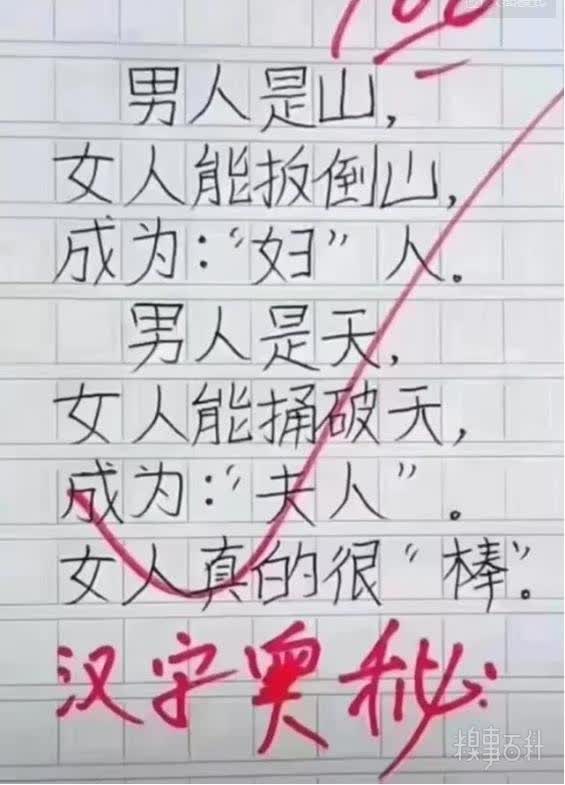 100
男人是山，
女人能扳倒山，
成为：“妇”人。
男人是天，
女人能捅破天，
成为：“夫人”。
女人真的很“棒”。
汉字奥秘
糗事百科